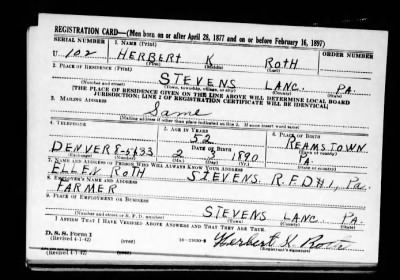 REGISTRATION CARD—(Men born on or after April 28, 1877 and on or before February 16, 1897)
SERIAL NUMBER 1. NAME (Print) ORDER NUMBER
U 102 HERBERT K ROTH
(First) (Middle) (Last)
2. PLACE OF RESIDENCE (Print)
STEVENS LANC. PA.
(Number and street) (Town, township, village, or city) (County) (State)
[THE PLACE OF RESIDENCE GIVEN ON THE LINE ABOVE WILL DETERMINE LOCAL BOARD
JURISDICTION; LINE 2 OF REGISTRATION CERTIFICATE WILL BE IDENTICAL]
3. MAILING ADDRESS
Same
[Mailing address if other than place indicated on line 2. If same insert word same]
4. TELEPHONE 5. AGE IN YEARS 6. PLACE OF BIRTH
52 REAMSTOWN
DATE OF BIRTH (Town or county)
DENVER 8-5633 2 3 1890 PA.
(Exchange) (Number) (Mo.) (Day) (Yr.) (State or country)
7. NAME AND ADDRESS OF PERSON WHO WILL ALWAYS KNOW YOUR ADDRESS
ELLEN ROTH STEVENS R.F.D#1, Pa.
8. EMPLOYER'S NAME AND ADDRESS
FARMER
9. PLACE OF EMPLOYMENT OR BUSINESS
STEVENS LANC. PA.
(Number and street or R. F. D. number) (Town) (County) (State)
I AFFIRM THAT I HAVE VERIFIED ABOVE ANSWERS AND THAT THEY ARE TRUE.
D. S. S. Form 1
(Revised 4-1-42) (over) Herbert K. Roth
(Registrant's signature)